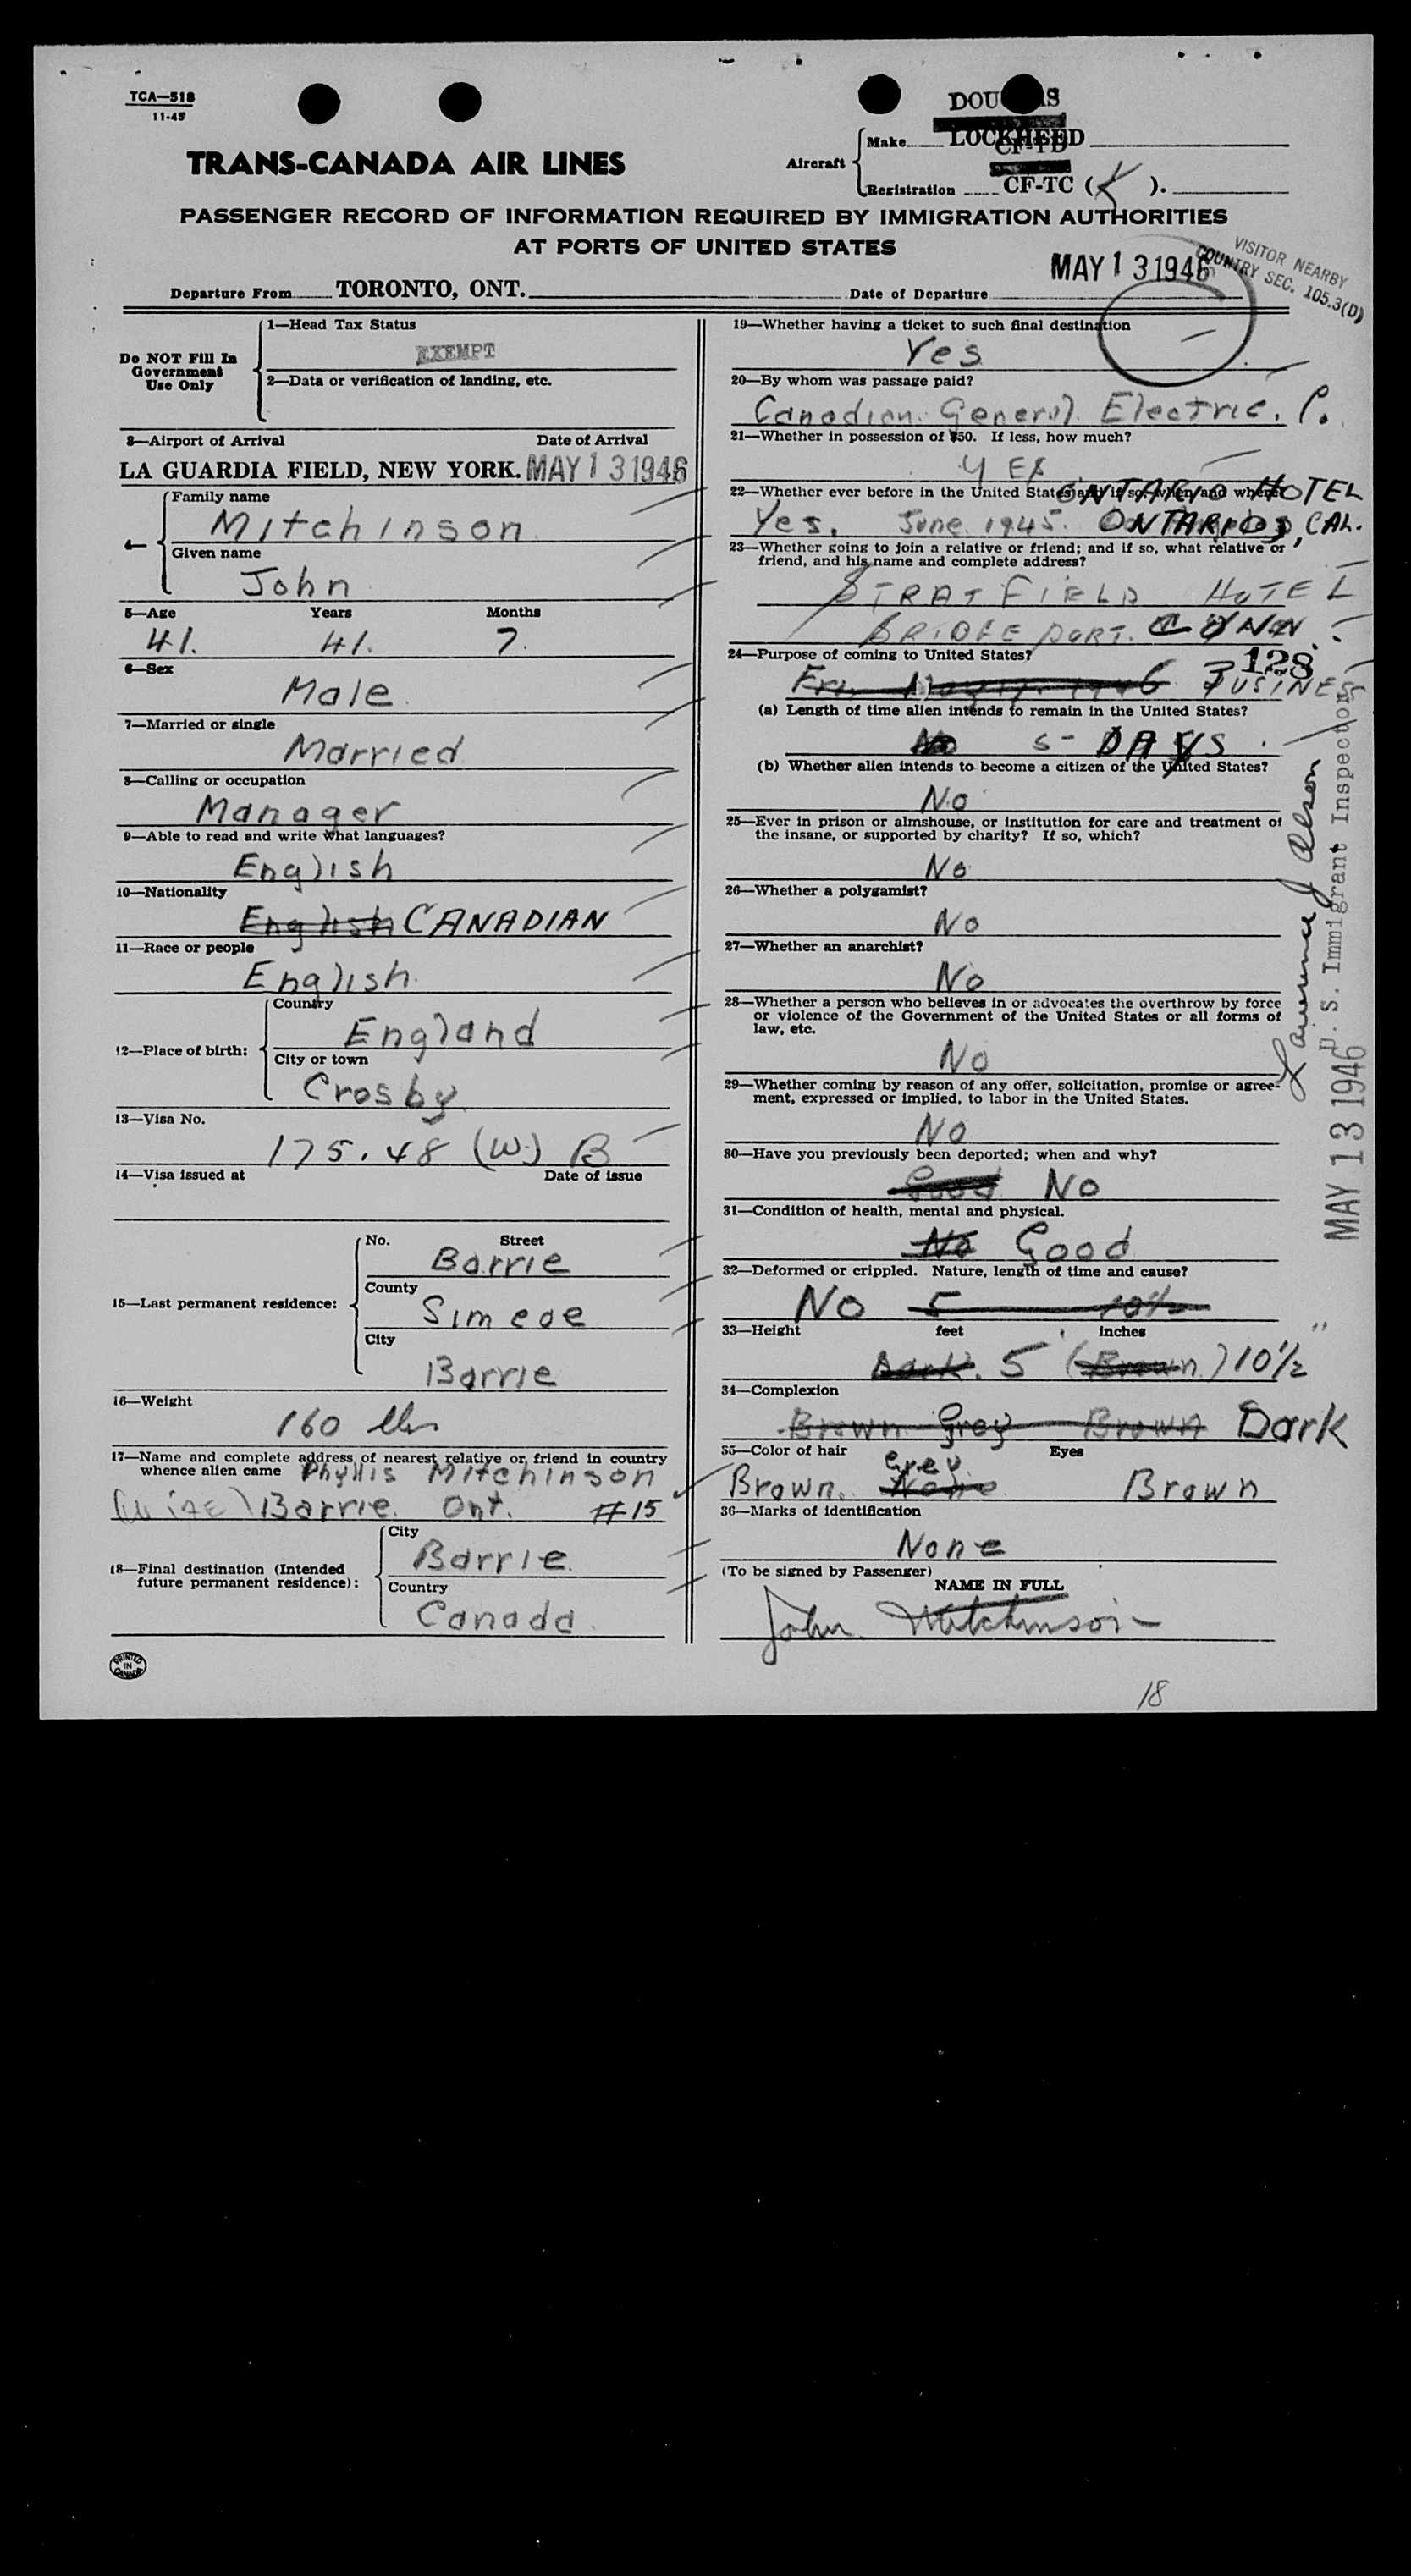 TCA—518
11-45
TRANS-CANADA AIR LINES
Aircraft
Make LOCKHEED
CF-TD
Registration CF-TC ( K ).
PASSENGER RECORD OF INFORMATION REQUIRED BY IMMIGRATION AUTHORITIES
AT PORTS OF UNITED STATES
VISITOR NEARBY
COUNTRY SEC. 105.3(D)
Departure From TORONTO, ONT. Date of Departure MAY 13 1946
Do NOT Fill In
Government
Use Only
1—Head Tax Status
EXEMPT
2—Data or verification of landing, etc.
3—Airport of Arrival Date of Arrival
LA GUARDIA FIELD, NEW YORK. MAY 13 1946
4—
Family name
Mitchinson
Given name
John
5—Age Years Months
41. 41. 7.
6—Sex
Male
7—Married or single
Married
8—Calling or occupation
Manager
9—Able to read and write what languages?
English
10—Nationality
English CANADIAN
11—Race or people
English
12—Place of birth:
Country
England
City or town
Crosby
13—Visa No.
175.48 (W) B
14—Visa issued at Date of issue
15—Last permanent residence:
No. Street
Barrie
County
Simcoe
City
Barrie
16—Weight
160 lbs
17—Name and complete address of nearest relative or friend in country
whence alien came Phyllis Mitchinson
(Wife) Barrie. Ont. #15
18—Final destination (Intended
future permanent residence):
City
Barrie.
Country
Canada.
PRINTED
IN
CANADA
19—Whether having a ticket to such final destination
Yes
20—By whom was passage paid?
Canadian General Electric.
21—Whether in possession of $50. If less, how much?
YES
22—Whether ever before in the United States; and if so, when and where?
ONTARIO HOTEL
Yes. June 1945. ONTARIO, CAL.
23—Whether going to join a relative or friend; and if so, what relative or
friend, and his name and complete address?
STRATFIELD HOTEL
BRIDGEPORT. CONN.
24—Purpose of coming to United States?
128
BUSINESS
(a) Length of time alien intends to remain in the United States?
5- DAYS.
(b) Whether alien intends to become a citizen of the United States?
No
25—Ever in prison or almshouse, or institution for care and treatment of
the insane, or supported by charity? If so, which?
No
26—Whether a polygamist?
No
27—Whether an anarchist?
No
28—Whether a person who believes in or advocates the overthrow by force
or violence of the Government of the United States or all forms of
law, etc.
No
29—Whether coming by reason of any offer, solicitation, promise or agree-
ment, expressed or implied, to labor in the United States.
No
30—Have you previously been deported; when and why?
Good No
31—Condition of health, mental and physical.
No Good
32—Deformed or crippled. Nature, length of time and cause?
No 5 10½
33—Height feet inches
Dark. 5 (Brown) 10½"
34—Complexion
Brown Grey Brown Dark
35—Color of hair Eyes
Grey
Brown. None Brown
36—Marks of identification
None
(To be signed by Passenger)
NAME IN FULL
John Mitchinson
18
U. S. Immigrant Inspector
MAY 13 1946